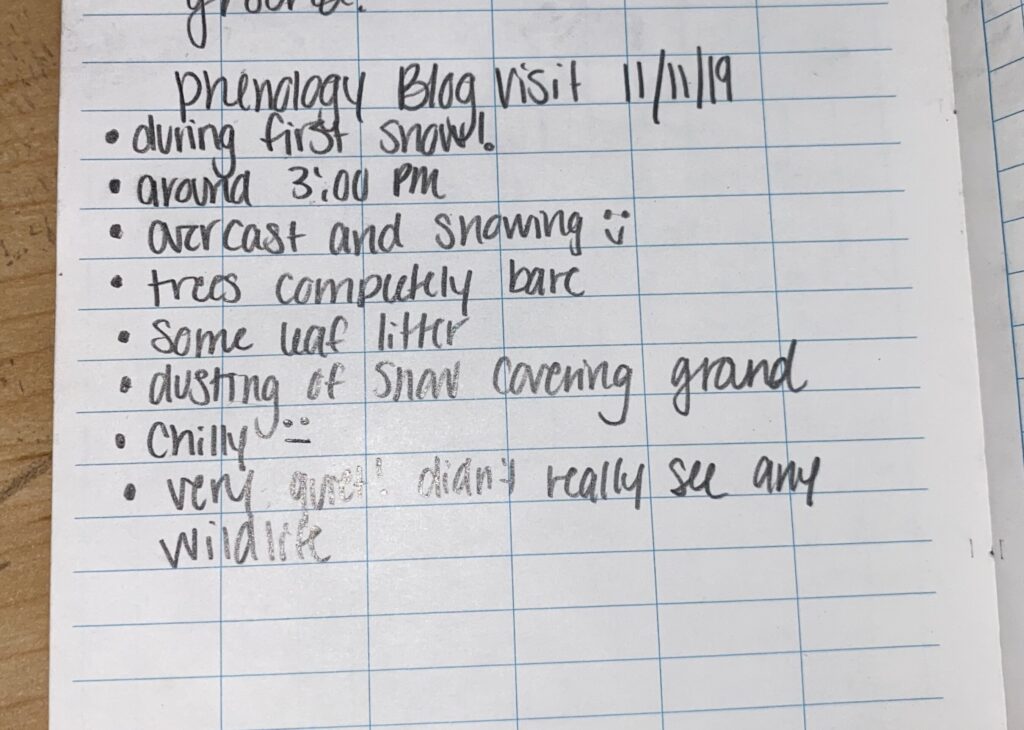 ground.
Phenology Blog Visit 11/11/19
• during first snow!
• around 3:00 PM
• overcast and snowing :)
• trees completely bare
• some leaf litter
• dusting of snow covering ground
• Chilly :|
• very quiet! didn't really see any
wildlife